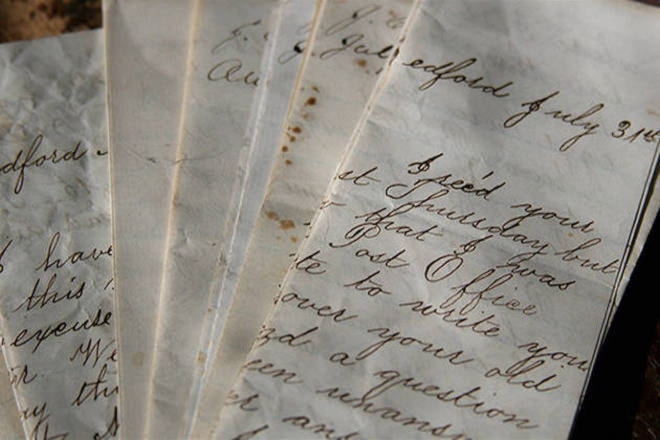 dford
I have
this
excuse
r. We
ay th
J.
Au
J. J.
Jul
edford July 31st
I rec'd your
st Thursday but
that I was
Post Office
te to write you
over your old
nd a question
een unans
er an